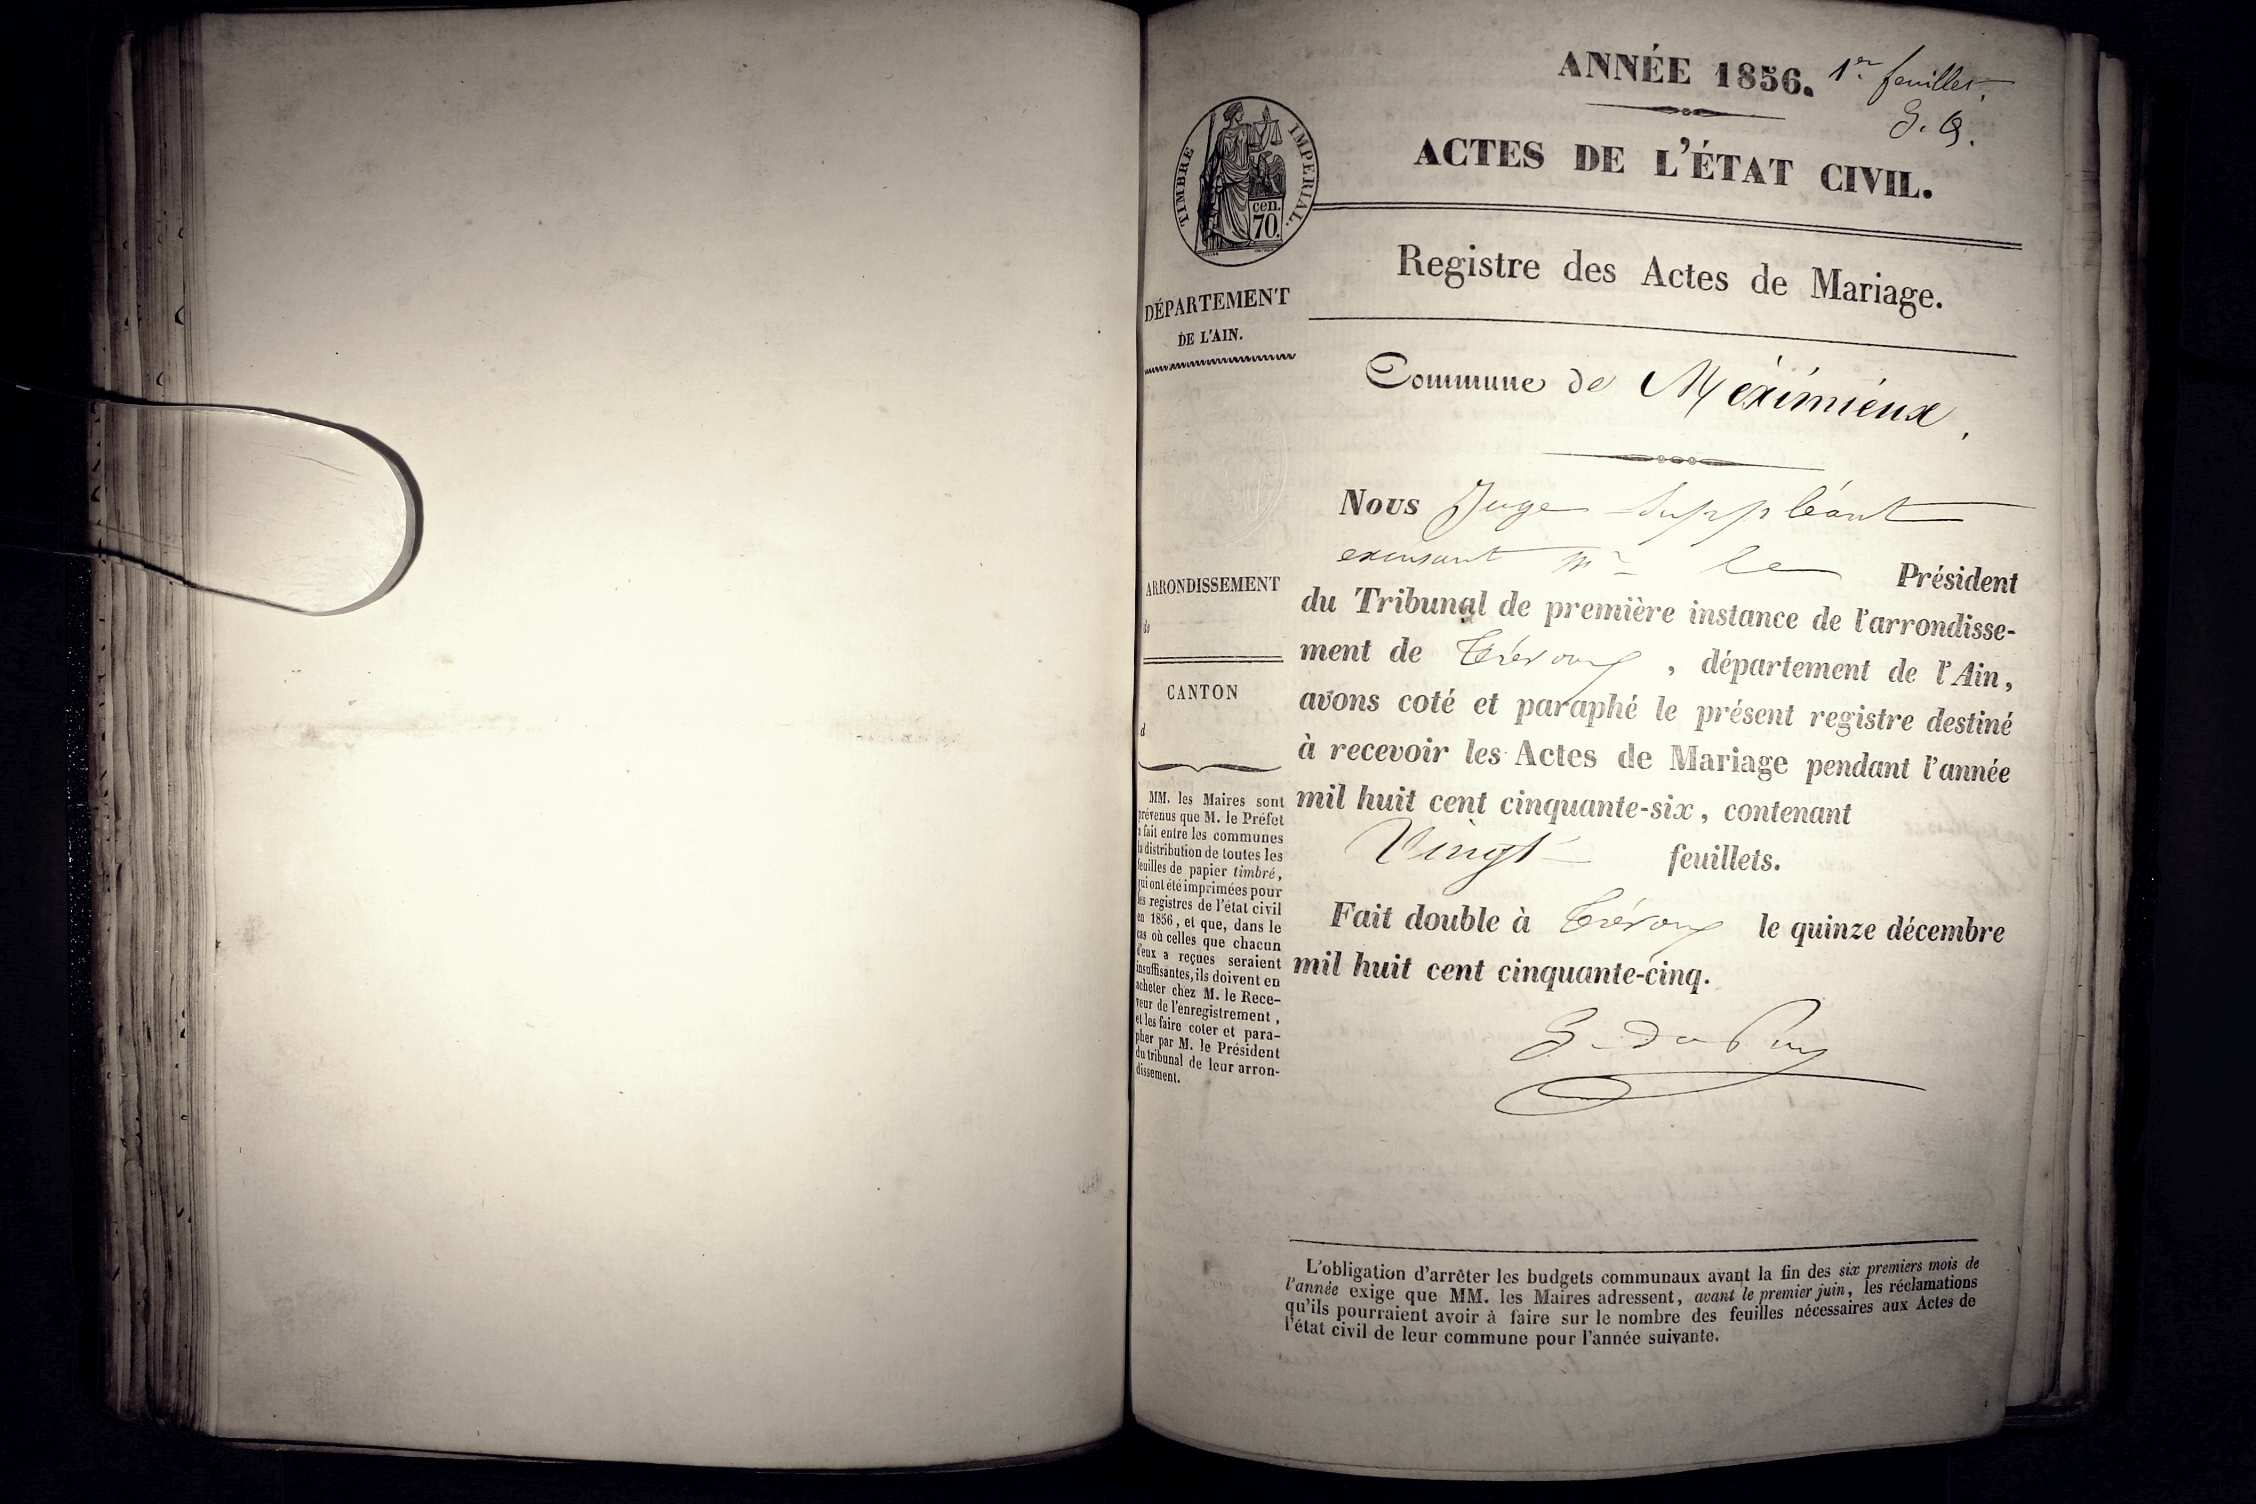 ANNÉE 1856. 1er feuillet.
ACTES DE L'ÉTAT CIVIL.
TIMBRE IMPERIAL.
cen.
70.
Registre des Actes de Mariage.
DÉPARTEMENT
DE L'AIN.
Commune de Méximieux.
Nous Juge Suppléant
excusant Mr le Président
du Tribunal de première instance de l'arrondisse-
ment de Trévoux, département de l'Ain,
avons coté et paraphé le présent registre destiné
à recevoir les Actes de Mariage pendant l'année
mil huit cent cinquante-six, contenant
Vingt feuillets.
Fait double à Trévoux le quinze décembre
mil huit cent cinquante-cinq.
ARRONDISSEMENT
de
CANTON
d
MM. les Maires sont
prévenus que M. le Préfet
a fait entre les communes
la distribution de toutes les
feuilles de papier timbré,
qui ont été imprimées pour
les registres de l'état civil
en 1856, et que, dans le
cas où celles que chacun
d'eux a reçues seraient
insuffisantes, ils doivent en
acheter chez M. le Rece-
veur de l'enregistrement,
et les faire coter et para-
pher par M. le Président
du tribunal de leur arron-
dissement.
L'obligation d'arrêter les budgets communaux avant la fin des six premiers mois de
l'année exige que MM. les Maires adressent, avant le premier juin, les réclamations
qu'ils pourraient avoir à faire sur le nombre des feuilles nécessaires aux Actes de
l'état civil de leur commune pour l'année suivante.